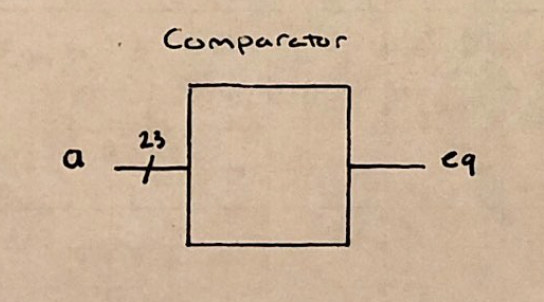 Comparator
23
a
eq